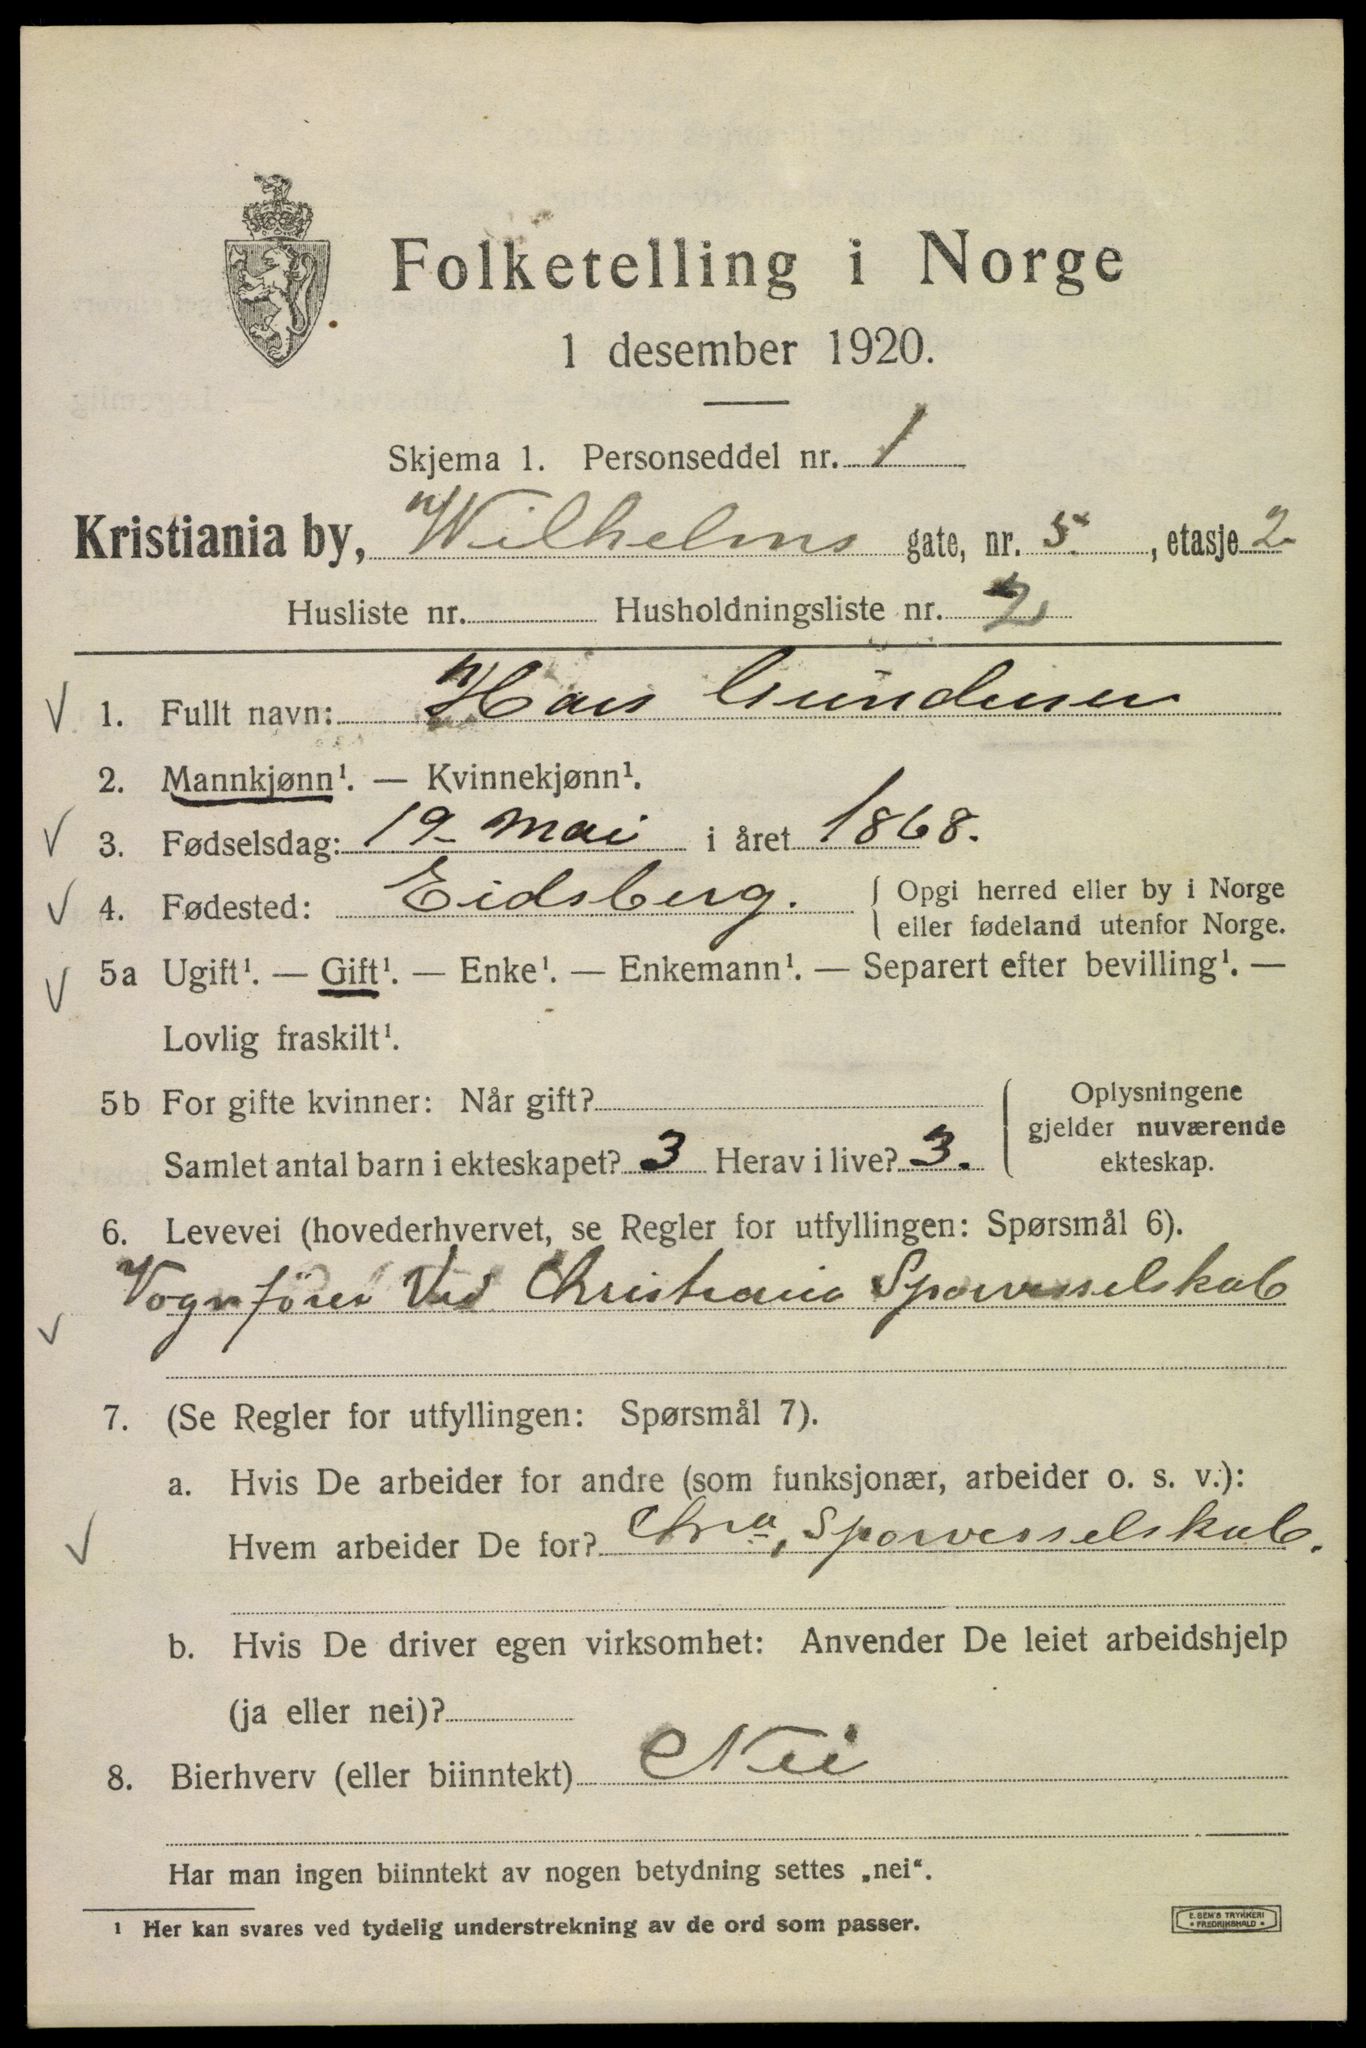 Folketelling i Norge
1 desember 1920.
Skjema 1. Personseddel nr. 1
Kristiania by, Wilhelms gate, nr. 5. , etasje 2.
Husliste nr. Husholdningsliste nr. 2
1. Fullt navn: Hans Gundersen
2. Mannkjønn¹. — Kvinnekjønn¹.
3. Fødselsdag: 19 mai i året 1868.
4. Fødested: Eidsberg. { Opgi herred eller by i Norge
eller fødeland utenfor Norge.
5a Ugift¹. — Gift¹. — Enke¹. — Enkemann¹. — Separert efter bevilling¹. —
Lovlig fraskilt¹.
5b For gifte kvinner: Når gift?
Samlet antal barn i ekteskapet? 3 Herav i live? 3.
Oplysningene
gjelder nuværende
ekteskap.
6. Levevei (hovederhvervet, se Regler for utfyllingen: Spørsmål 6).
Vognfører Ved Christiania Sporvesselskab
7. (Se Regler for utfyllingen: Spørsmål 7).
a. Hvis De arbeider for andre (som funksjonær, arbeider o. s. v.):
Hvem arbeider De for? Chra, Sporvesselskab.
b. Hvis De driver egen virksomhet: Anvender De leiet arbeidshjelp
(ja eller nei)?
8. Bierhverv (eller biinntekt) Nei
Har man ingen biinntekt av nogen betydning settes „nei“.
¹ Her kan svares ved tydelig understrekning av de ord som passer.
E. SEM'S TRYKKERI
• FREDRIKSHALD •